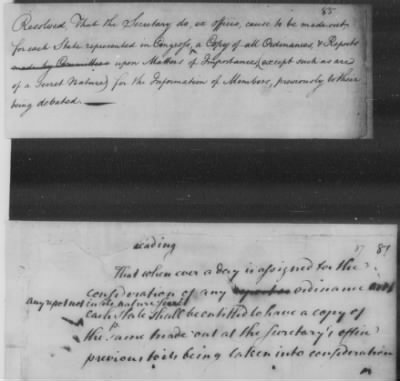 85
Resolved, That the Secretary do, ex officio, cause to be made out
for each State represented in Congress, a Copy of all Ordinances, & Reports
made by Committees upon Matters of Importance, (except such as are
of a Secret Nature) for the Information of Members, previously to their
being debated.
reading
87
That when ever a day is assigned for the
consideration of any reported ordinance and
any report not in its nature secret
each State shall be entitled to have a copy of
the same made out at the Secretary's office
previous to its being taken into consideration